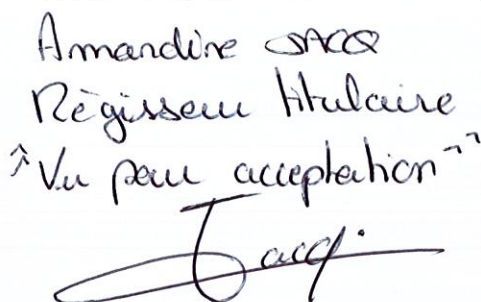 Amandine JACQ
Régisseur titulaire
"Vu pour acceptation"
Jacq.